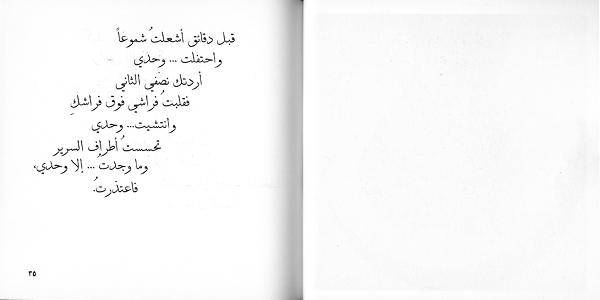 قبل دقائق أشعلتُ شموعاً
واحتفلت ... وحدي
أردتك نصفي الثاني
فقلبتُ فراشي فوق فراشكِ
وانتشيت... وحدي
تحسستُ أطراف السرير
وما وجدتُ ... إلا وحدي،
فاعتذرتُ.
٣٥